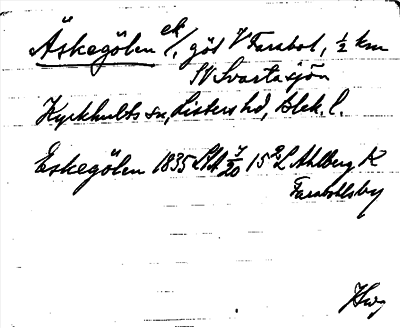 Äskegölen ek/, göl V Farabol, ½ km
SV Svartasjön
Kyrkhults sn, Listers hd, Blek. l.
Eskegölen 1835 LSA 7/20 15 2L Ahlberg K
Farabohlsby